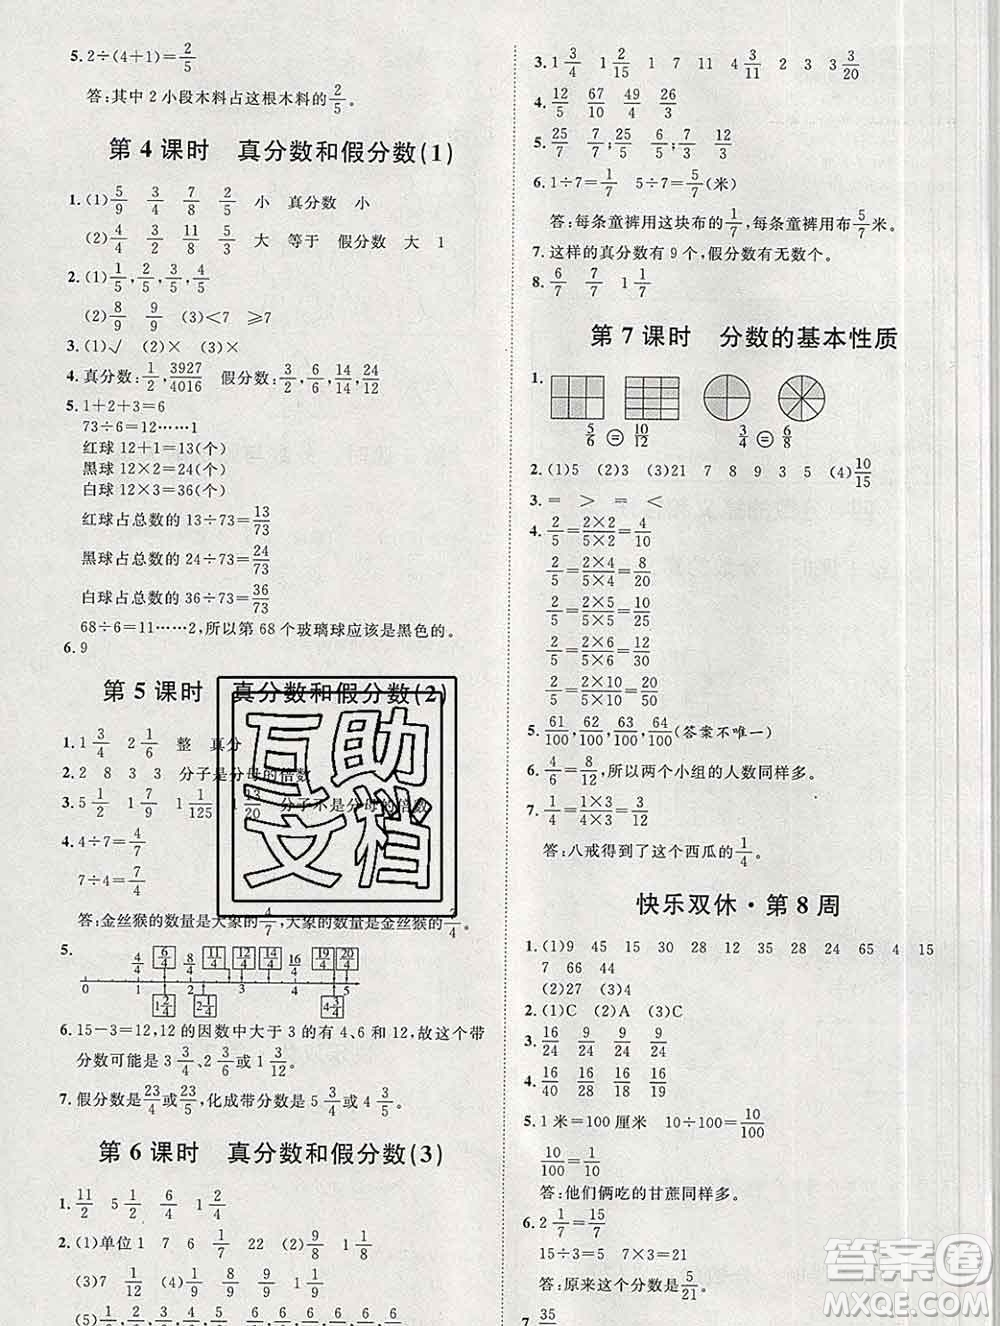 5. 2÷(4+1)=2/5
答:其中 2 小段木料占这根木料的 2/5。
第 4 课时 真分数和假分数(1)
1. (1) 5/9 3/4 7/8 2/5 小 真分数 小
(2) 4/4 3/2 11/8 5/3 大 等于 假分数 大 1
2. (1) 1/5, 2/5, 3/5, 4/5
(2) 8/9 9/9 (3)<7 ≥7
3. (1)√ (2)× (3)×
4. 真分数: 1/2, 3927/4016 假分数: 3/2, 6/6, 14/14, 24/12
5. 1+2+3=6
73÷6=12……1
红球 12+1=13(个)
黑球 12×2=24(个)
白球 12×3=36(个)
红球占总数的 13÷73=13/73
黑球占总数的 24÷73=24/73
白球占总数的 36÷73=36/73
68÷6=11……2,所以第 68 个玻璃球应该是黑色的。
6. 9
第 5 课时 真分数和假分数(2)
1. 1 3/4 2 1/6 整 真分
2. 2 8 3 3 分子是分母的倍数
3. 5 1/2 1 7/9 1 1/125 1 13/20 分子不是分母的倍数
4. 4÷7=4/7
7÷4=7/4
答:金丝猴的数量是大象的 4/7,大象的数量是金丝猴的 7/4。
5.
4/4 6/4 8/4 11/4 12/4 14/4 16/4 19/4 20/4
0 1 2 3 4 5
1 2/4 2 1/4
6. 15-3=12,12 的因数中大于 3 的有 4、6 和 12,故这个带
分数可能是 3 3/4、2 3/6 和 1 3/12。
7. 假分数是 23/4 或 23/5,化成带分数是 5 3/4 或 4 3/5。
第 6 课时 真分数和假分数(3)
1. 11/2 5 1/2 6/4 1 2/4
2. (1)单位 1 7 6 (2) 1/9 22 (2) 9/8
(3)7
(5)
3. 1 3/4 1 2/15 1 7 11 4 3/10 7 2 3 3/20
4. 12/5 67/10 49/6 26/3
5. 25/7 7/25 1/6 6/7 5/7
6. 1÷7=1/7 5÷7=5/7(米)
答:每条童裤用这块布的 1/7,每条童裤用布 5/7 米。
7. 这样的真分数有 9 个,假分数有无数个。
8. 6/7 7/7
第 7 课时 分数的基本性质
1.
5/6 = 10/12 3/4 = 6/8
2. (1)5 (2)15 (3)21 7 8 9 3 5 (4)10/15
3. = > = <
4. 2/5=2×2/5×2=4/10
2/5=2×4/5×4=8/20
2/5=2×6/5×6=12/30
2/5=2×8/5×8=16/40
2/5=2×10/5×10=20/50
5. 61/100, 62/100, 63/100, 64/100(答案不唯一)
6. 4/6=8/12,所以两个小组的人数同样多。
7. 1/4=1×3/4×3=3/12
答:八戒得到了这个西瓜的 1/4。
快乐双休·第 8 周
1. (1)9 45 15 30 28 12 35 28 24 65 4 15
7 66 44
(2)27 (3)4
2. (1)C (2)A (3)C
3. 16/24 9/24 4/24 10/24
4. 16/40 16/28 16/18 16/24
5. 1 米=100 厘米 10÷100=10/100
10/100=1/10
答:他们俩吃的甘蔗同样多。
6. 2 1/7=15/7
15÷3=5 7×3=21
答:原来这个分数是 5/21。
7. 35
互助
文档
答案圈
MXQE.COM